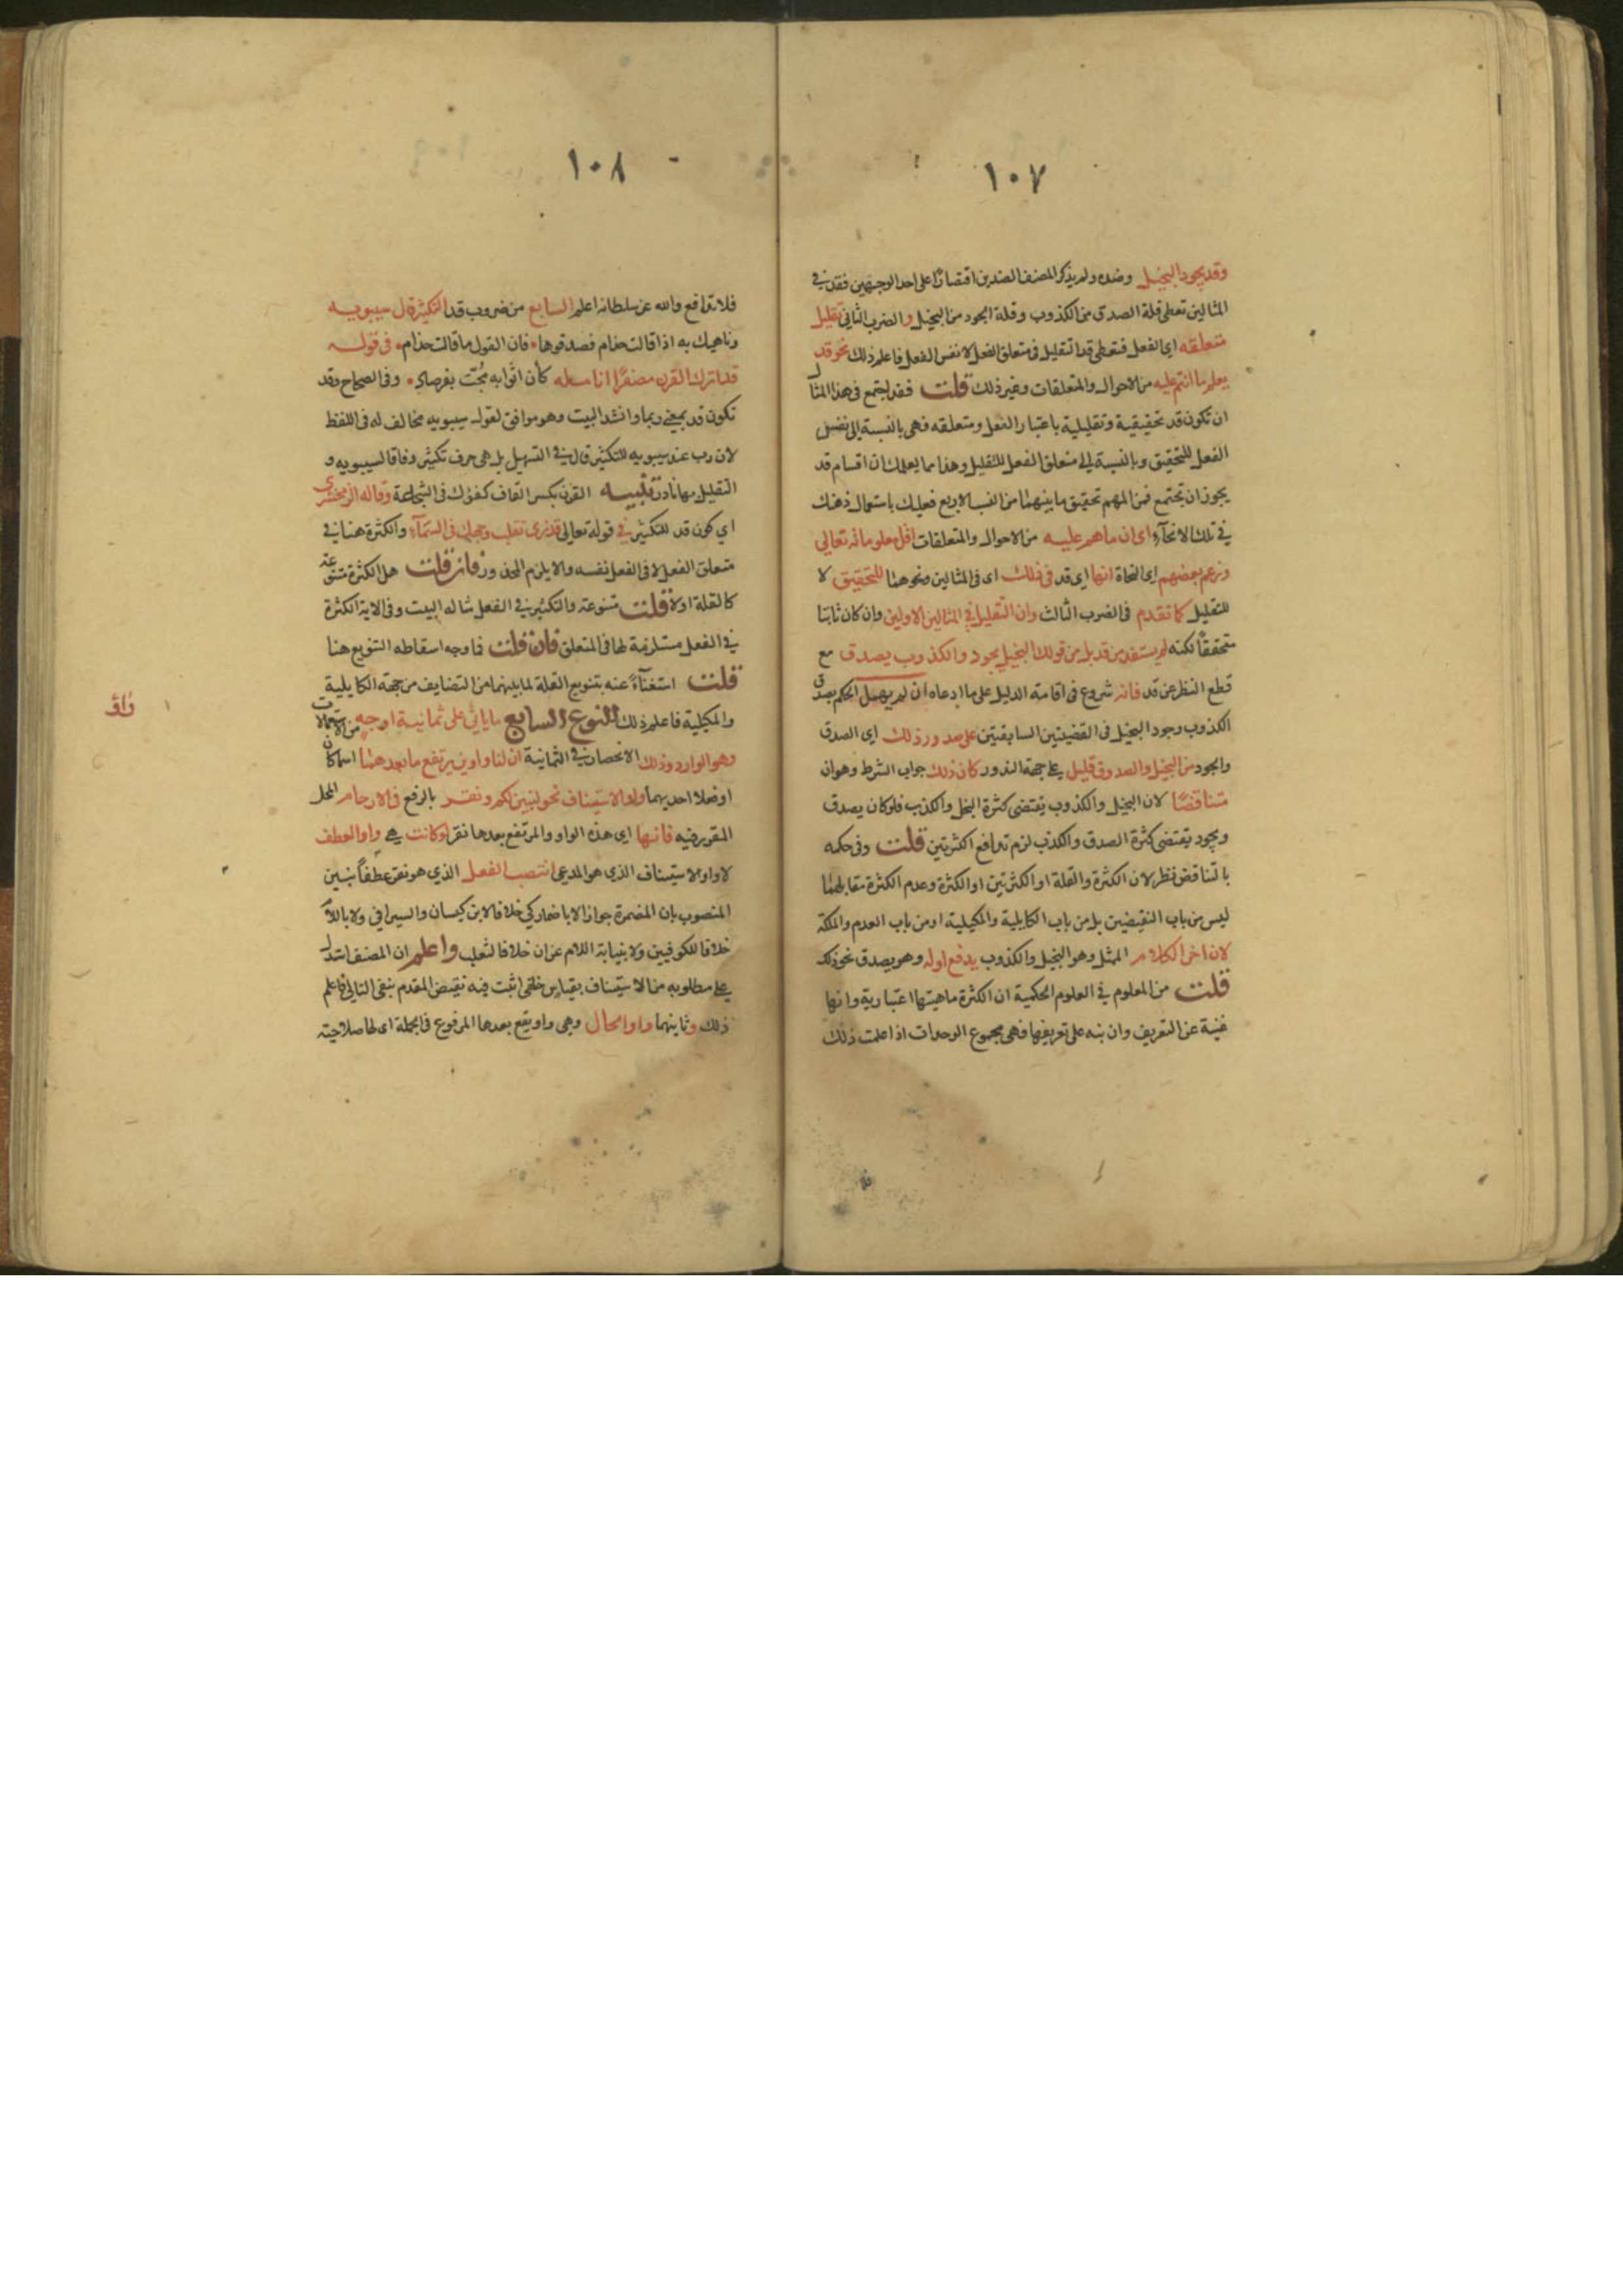 ١٠٧
وقد يجود البخيل وضده ولم يذكر المصنف الضدين اقتصارا على احد الوجهين فقد في
المثالين تعطي قلة الصدق من الكذوب وقلة الجود من البخيل والضرب الثاني تقليل
متعلقه اي الفعل فتعطي قد التقليل في متعلق الفعل لا نفس الفعل فاعلم ذلك نحو قد
يعلم ما انتم عليه من الاحوال والمتعلقات وغير ذلك قلت فقد اجتمع في هذا المثال
ان تكون قد تحقيقية وتقليلية باعتبار الفعل ومتعلقه فهي بالنسبة الى نفس
الفعل للتحقيق وبالنسبة الى متعلق الفعل للتقليل وهذا مما يعلمك ان اقسام قد
يجوز ان تجتمع فمن المهم تحقيق ما بينهما من النسب الاربع فعليك باستعمال ذهنك
في تلك الانحآء اى ان ما هم عليه من الاحوال والمتعلقات اقل معلوماته تعالى
وزعم بعضهم اي النحاة انها اي قد في ذلك اى في المثالين ونحوهما للتحقيق لا
للتقليل كما تقدم في الضرب الثالث وان التقليل في المثالين الاولين وان كان ثابتا
متحققا لكنه لم يستفد من قد بل من قولك البخيل يجود والكذوب يصدق مع
قطع النظر عن قد فانه شروع في اقامة الدليل على ما ادعاه ان لم يحمل الحكم بصدق
الكذوب وجود البخيل في القضيتين السابقتين على صدور ذلك اي الصدق
والجود من البخيل والصدوق قليل على جهة الندور كان ذلك جواب الشرط وهو ان
متناقضًا لان البخيل والكذوب يقتضي كثرة البخل والكذب فلو كان يصدق
ويجود يقتضي كثرة الصدق والكذب لزم تدافع الكثرتين قلت وفي حكمه
بالتناقض نظر لان الكثرة والقلة او الكثرتين او الكثرة وعدم الكثرة تقابلهما
ليس من باب النقيضين بل من باب الكايلية والمكيلية او من باب العدم والملكة
لان اخر الكلام الممثل وهو البخيل والكذوب يدفع اوله وهو يصدق نحو ذلك
قلت من المعلوم في العلوم الحكمية ان الكثرة ماهيتها اعتبارية وانها
غنية عن التعريف وان نبه على تعريفها فهي مجموع الوحدات اذا علمت ذلك
١٠٨
فلا تدافع والله عز سلطانه اعلم السابع من ضروب قد التكثير قال سيبويه
وناهيك به اذا قالت حذام فصدقوها فان القول ما قالت حذام في قوله
قد اترك القرن مصفرًا انامله كأن اثوابه مُجّت بفرصاد وفي الصحاح وقد
تكون قد بمعنى ربما وانشد البيت وهو موافق لقول سيبويه مخالف له في اللفظ
لان رب عند سيبويه للتكثير قال في التسهيل بل هي حرف تكثير وفاقا لسيبويه و
التقليل بها نادر تنبيه القرن بكسر القاف كفؤك في الشجاعة وقاله الزمخشري
اي كون قد للتكثير في قوله تعالى قد نرى تقلب وجهك في السمآء والكثرة هنا في
متعلق الفعل لا في الفعل نفسه والا يلزم المحذور فان قلت هل الكثرة متنوعة
كالقلة اولا قلت متنوعة والتكثير في الفعل مثاله البيت وفي الاية الكثرة
في الفعل مستلزمة لها في المتعلق فان قلت فما وجه اسقاطه التنويع هنا
قلت استغنآءً عنه بتنويع القلة لما بينهما من التضايف من جهة الكايلية
والمكيلية فاعلم ذلك النوع السابع ما ياتي على ثمانية اوجه من الاستعمالات
وهو الواو وذلك الانحصار في الثمانية ان لنا واوين يرتفع ما بعدهما اسما كان
او فعلا احديهما واو الاستيناف نحو لنبين لكم ونقر بالرفع في الارحام المحل
المقرر فيه فانها اي هذه الواو والمرتفع بعدها نقر لو كانت هي واو العطف
لا واو الاستيناف الذي هو المدعى انتصب الفعل الذي هو نقر عطفًا نبين
المنصوب بان المضمرة جوازا لا باضمار كي خلافا لابن كيسان والسيرافي ولا باللام
خلافا للكوفيين ولا بنيابة اللام عن ان خلافا لثعلب واعلم ان المصنف استدل
على مطلوبه من الاستيناف بقياس خلفي اثبت فيه نقيض المقدم بنفي التالي فاعلم
ذلك وثاينهما واو الحال وهي واو يقع بعدها المرفوع في الجملة اى لها صلاحية